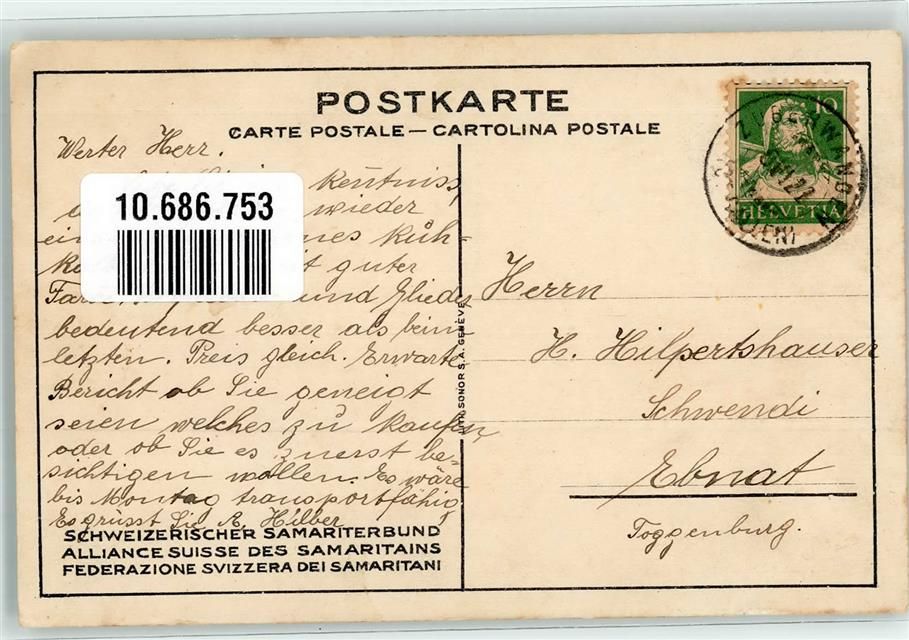 POSTKARTE
CARTE POSTALE — CARTOLINA POSTALE
10
HELVETIA
Werter Herr.
kentniss,
wieder
Küh-
guter
und Glieder
bedeutend besser als beim
letzten. Preis gleich. Erwarte
Bericht ob Sie geneigt
seien welches zu kaufen
oder ob Sie es zuerst be-
sichtigen wollen. Es wäre
bis Montag transportfähig
Es grüsst Sie A. Hilber
SCHWEIZERISCHER SAMARITERBUND
ALLIANCE SUISSE DES SAMARITAINS
FEDERAZIONE SVIZZERA DEI SAMARITANI
10.686.753
SONOR S.A. GENÈVE
Herrn
H. Hilpertshauser
Schwendi
Ebnat
Toggenburg.